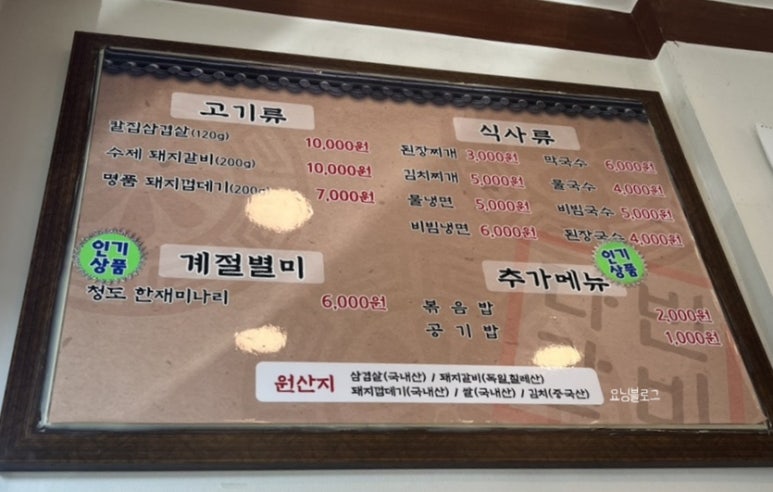 고기류
칼집삼겹살(120g) 10,000원
수제 돼지갈비(200g) 10,000원
명품 돼지껍데기(200g 7,000원
식사류
된장찌개 3,000원
김치찌개 5,000원
물냉면 5,000원
비빔냉면 6,000원
막국수 6,000원
물국수 4,000원
비빔국수 5,000원
된장국수 4,000원
인기
상품
계절별미
청도 한재미나리 6,000원
인기
상품
추가메뉴
볶음밥 2,000원
공기밥 1,000원
원산지
삼겹살(국내산) / 돼지갈비(독일,칠레산)
돼지껍데기(국내산) / 쌀(국내산) / 김치(중국산)
요닝블로그